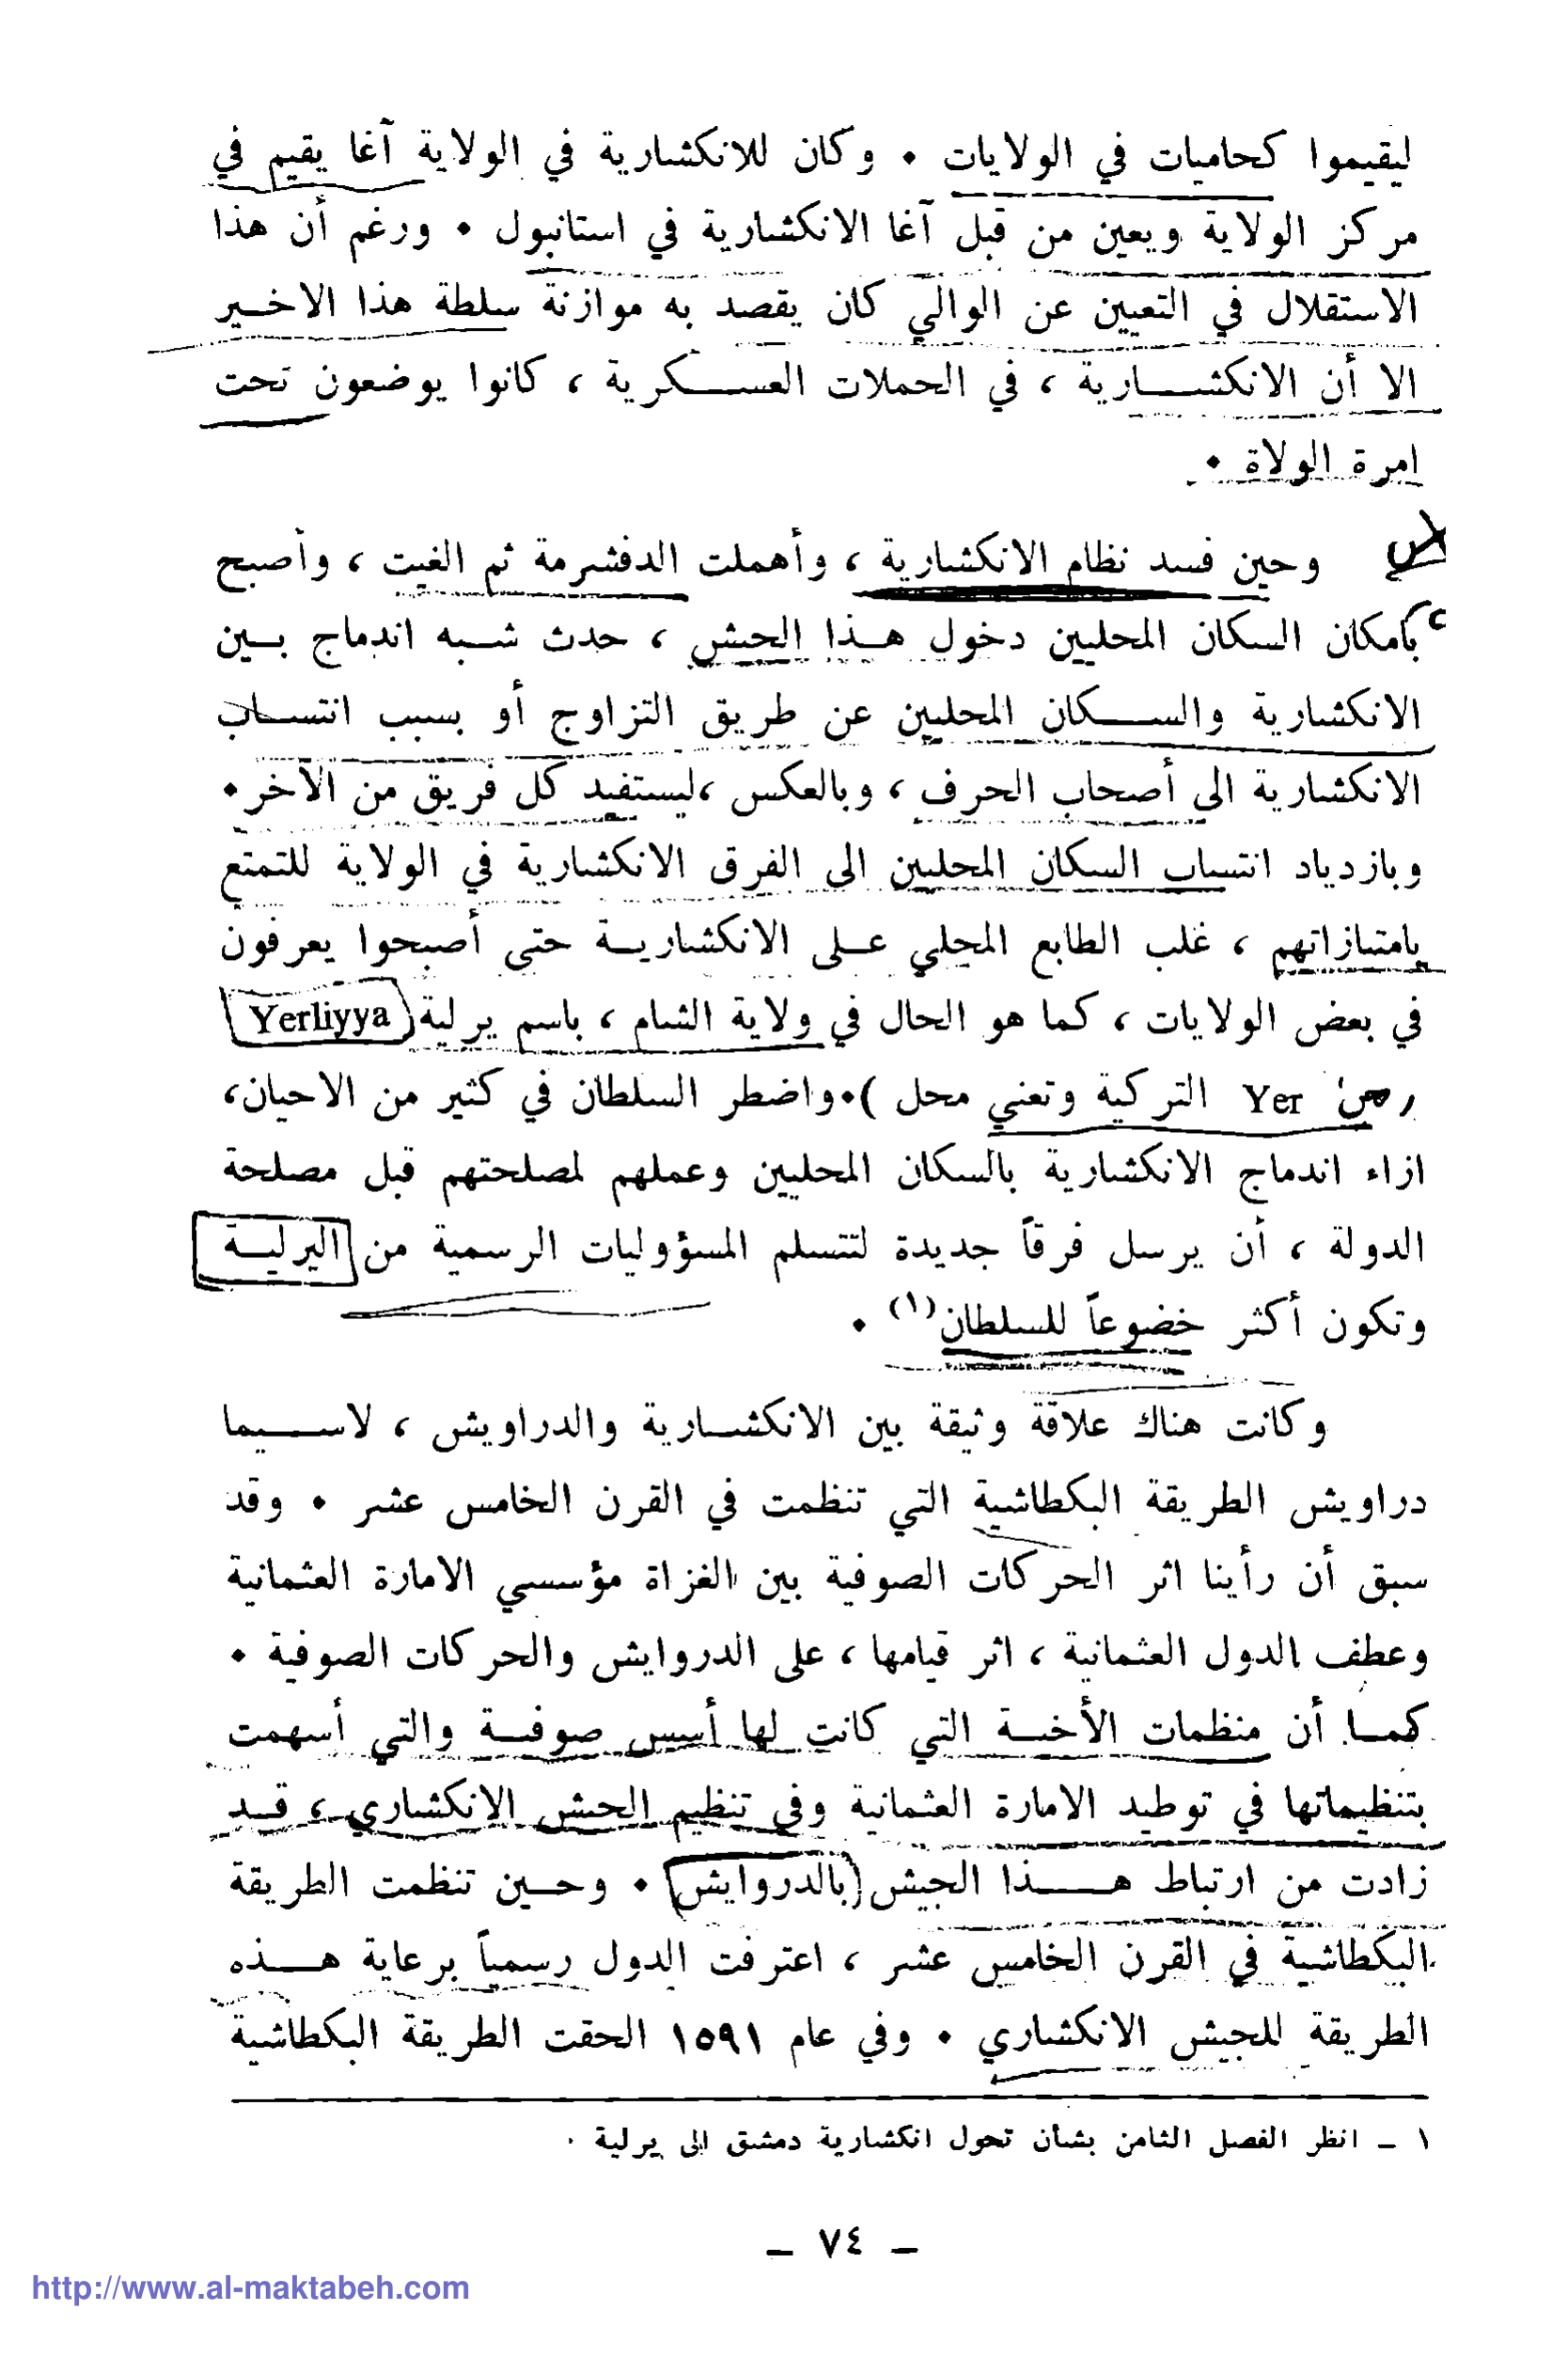 ليقيموا كحاميات في الولايات ٠ وكان للانكشارية في الولاية آغا يقيم في
مركز الولاية ويعين من قبل آغا الانكشارية في استانبول ٠ ورغم أن هذا
الاستقلال في التعيين عن الوالي كان يقصد به موازنة سلطة هذا الاخير
الا أن الانكشارية ، في الحملات العسكرية ، كانوا يوضعون تحت
امرة الولاة ٠
وحين فسد نظام الانكشارية ، وأهملت الدفشرمة ثم الغيت ، وأصبح
بامكان السكان المحليين دخول هذا الجيش ، حدث شبه اندماج بين
الانكشارية والسكان المحليين عن طريق التزاوج أو بسبب انتساب
الانكشارية الى أصحاب الحرف ، وبالعكس ،ليستفيد كل فريق من الآخر٠
وبازدياد انتساب السكان المحليين الى الفرق الانكشارية في الولاية للتمتع
بامتيازاتهم ، غلب الطابع المحلي على الانكشارية حتى أصبحوا يعرفون
في بعض الولايات ، كما هو الحال في ولاية الشام ، باسم يرلية Yerliyya
(من Yer التركية وتعني محل )٠واضطر السلطان في كثير من الاحيان،
ازاء اندماج الانكشارية بالسكان المحليين وعملهم لمصلحتهم قبل مصلحة
الدولة ، أن يرسل فرقاً جديدة لتتسلم المسؤوليات الرسمية من اليرلية
وتكون أكثر خضوعاً للسلطان(١) ٠
وكانت هناك علاقة وثيقة بين الانكشارية والدراويش ، لاسيما
دراويش الطريقة البكطاشية التي تنظمت في القرن الخامس عشر ٠ وقد
سبق أن رأينا اثر الحركات الصوفية بين الغزاة مؤسسي الامارة العثمانية
وعطف الدول العثمانية ، اثر قيامها ، على الدروايش والحركات الصوفية ٠
كما أن منظمات الأخية التي كانت لها أسس صوفية والتي أسهمت
بتنظيماتها في توطيد الامارة العثمانية وفي تنظيم الجيش الانكشاري ، قد
زادت من ارتباط هذا الجيش بالدروايش ٠ وحين تنظمت الطريقة
البكطاشية في القرن الخامس عشر ، اعترفت الدول رسمياً برعاية هذه
الطريقة للجيش الانكشاري ٠ وفي عام ١٥٩١ الحقت الطريقة البكطاشية
١ ـ انظر الفصل الثامن بشأن تحول انكشارية دمشق الى يرلية ٠
ـ ٧٤ ـ
http://www.al-maktabeh.com